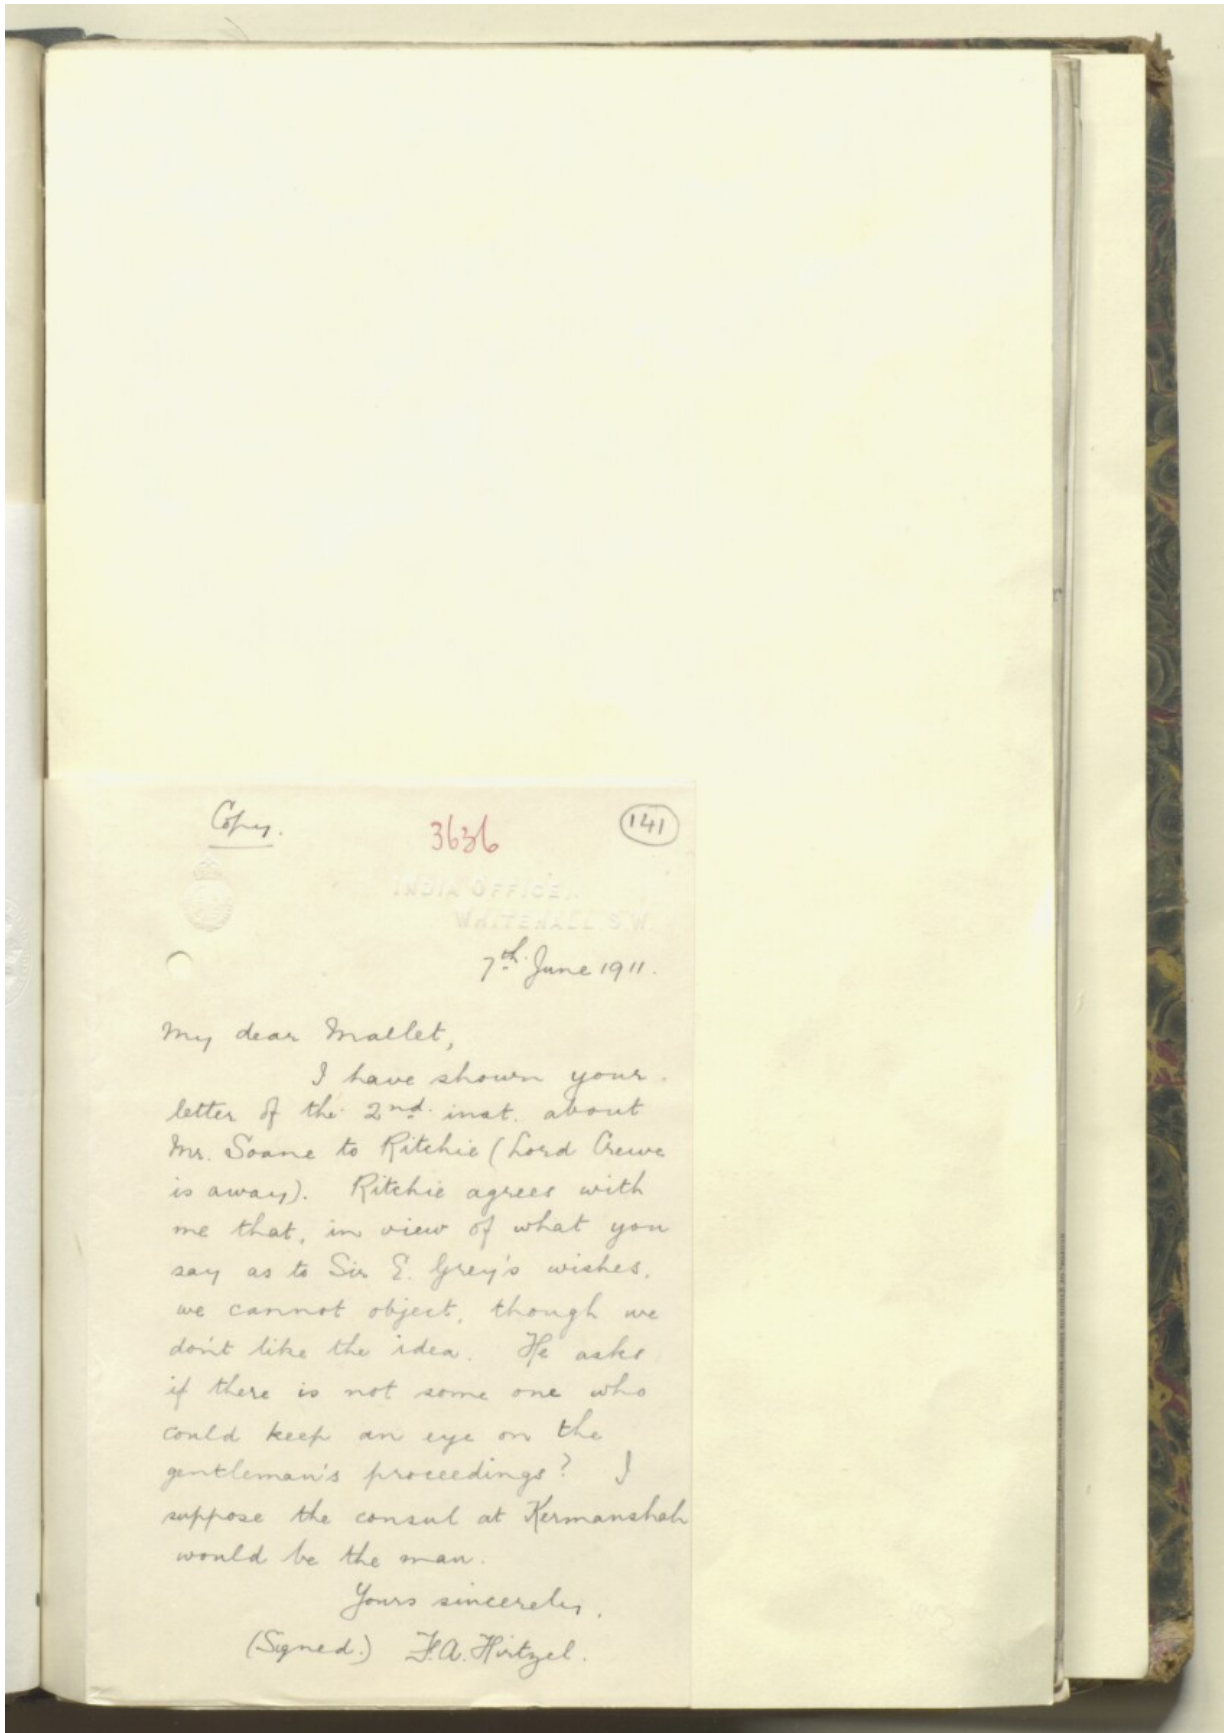 Copy.
3636
141
INDIA OFFICE,
WHITEHALL S.W.
7th. June 1911.
My dear Mallet,
I have shown your
letter of the 2nd. inst. about
Mr. Soane to Ritchie (Lord Crewe
is away). Ritchie agrees with
me that, in view of what you
say as to Sir E. Grey's wishes,
we cannot object, though we
don't like the idea. He asks
if there is not some one who
could keep an eye on the
gentleman's proceedings? I
suppose the consul at Kermanshah
would be the man.
Yours sincerely,
(Signed.) F.A. Hirtzel.